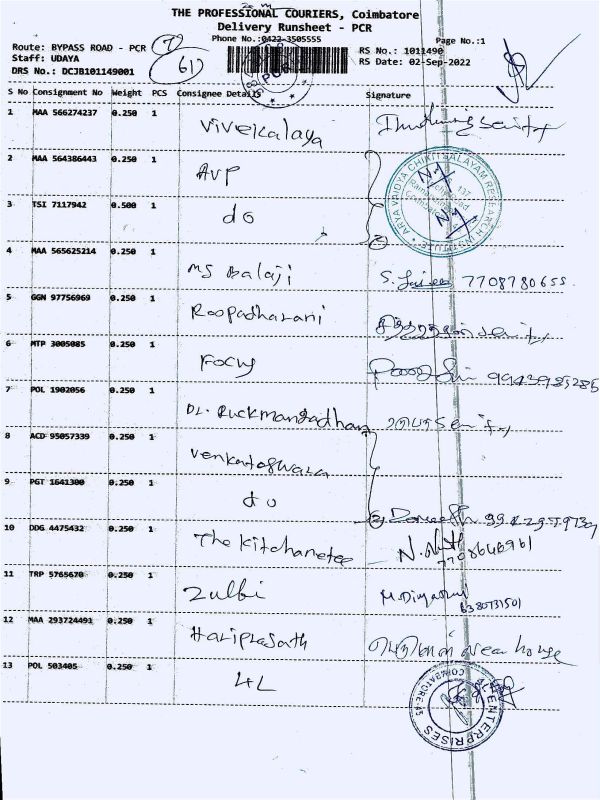 THE PROFESSIONAL COURIERS, Coimbatore
Delivery Runsheet - PCR
Phone No.:0422-3505555
Page No.:1
Route: BYPASS ROAD - PCR
Staff: UDAYA
DRS No.: DCJB101149001
RS No.: 1011490
RS Date: 02-Sep-2022
S No Consignment No Weight PCS Consignee Details Signature
1 MAA 566274237 0.250 1 Vivekalaya
2 MAA 564386443 0.250 1 AVP
3 TSI 7117942 0.500 1 do
ARYA VAIDYA CHIKITSALAYAM RESEARCH INSTITUTE
4 MAA 565625214 0.250 1 MS Balaji 7708780655
5 GGN 97756969 0.250 1 Roopadharani
6 MTP 3005085 0.250 1 Focus 9943985285
7 POL 1902056 0.250 1 Dr. Ruckmangadhan
8 ACD 95057339 0.250 1 Venkateswara
9 PGT 1641300 0.250 1 do
10 DDG 4475432 0.250 1 The Kitchanetee 7708640961
11 TRP 5765670 0.250 1 Zulbi 6380731501
12 MAA 293724491 0.250 1 Hariprasath
13 POL 503405 0.250 1 4L
ENTERPRISES